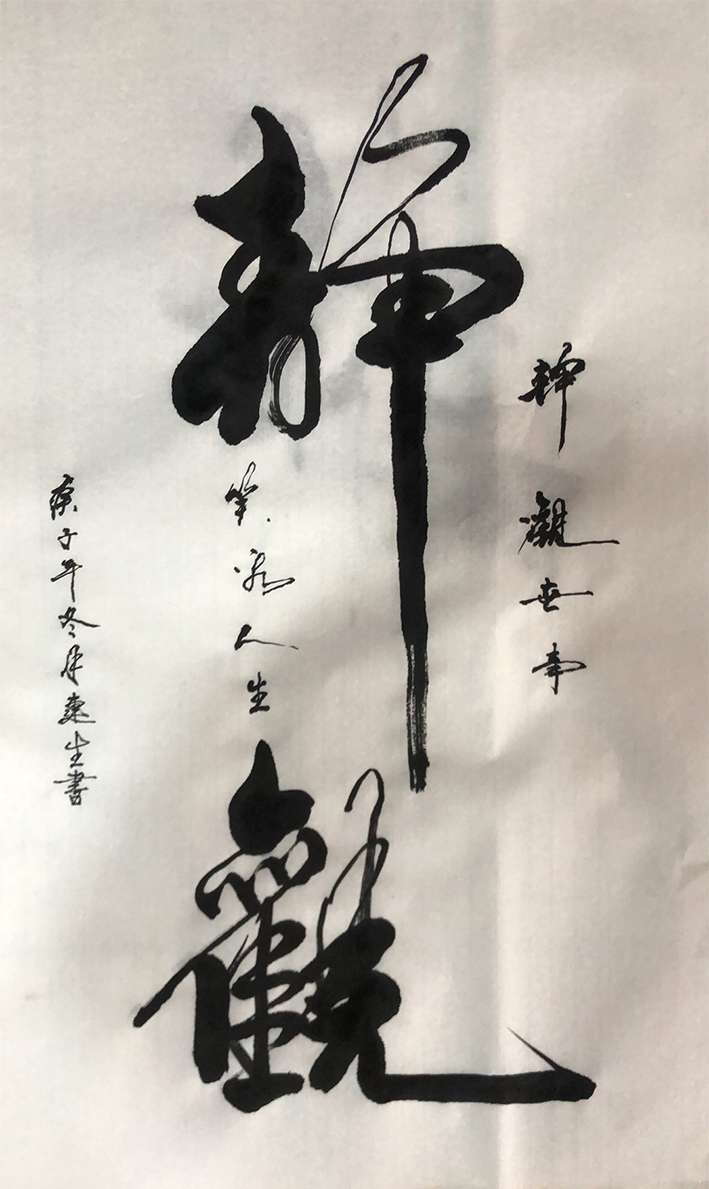 靜觀
靜觀世事
笑人生
庚子年冬月生書